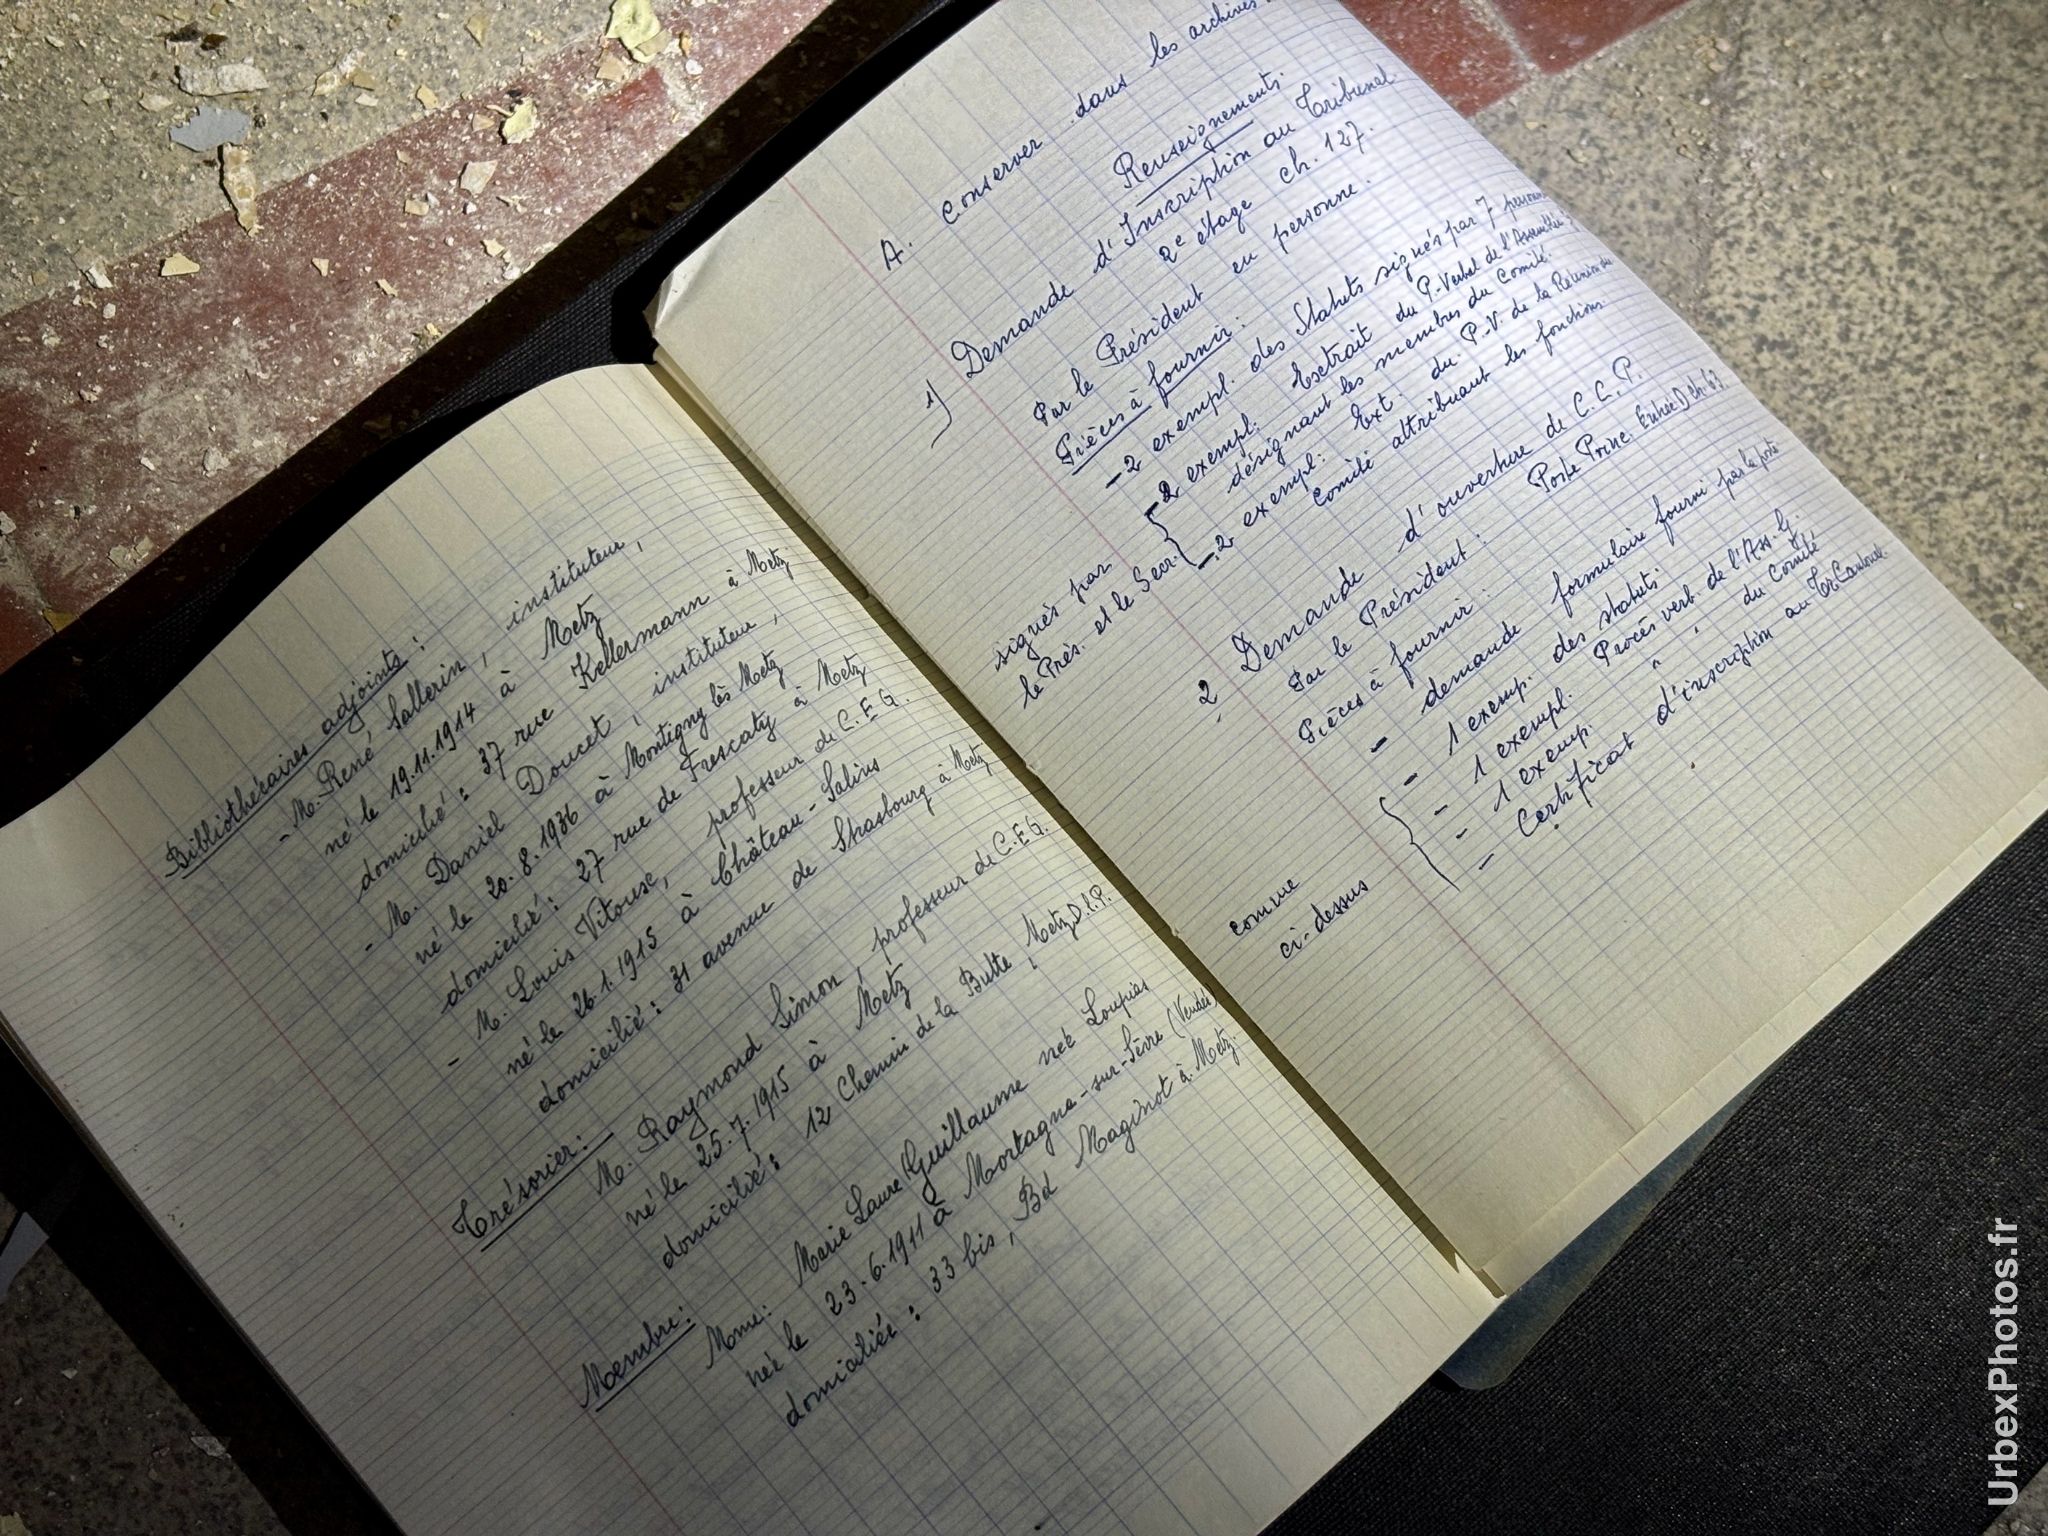 Bibliothécaires adjoints :
- M. René Sallerin, instituteur,
né le 19.11.1914 à Metz
domicilié : 37 rue Kellermann à Metz
- M. Daniel Doucet, instituteur,
né le 20.8.1936 à Montigny lès Metz
domicilié : 27 rue de Frescaty à Metz
- M. Louis Vitouse, professeur de C.E.G.
né le 26.1.1915 à Château-Salins
domicilié : 31 avenue de Strasbourg à Metz
Trésorier :
M. Raymond Simon, professeur de C.E.G.
né le 25.7.1915 à Metz
domicilié : 12 Chemin de la Butte, Metz
Membre :
Mme : Marie Laure Guillaume née Loupias
née le 23.6.1911 à Mortagne-sur-Sèvre (Vendée)
domiciliée : 33 bis, Bd Maginot à Metz.
A. conserver dans les archives
Renseignements.
1) Demande d'Inscription au Tribunal
2e étage ch. 127.
Par le Président en personne.
Pièces à fournir :
- 2 exempl. des Statuts signés par 7
- 2 exempl: Extrait du P-Verbal de l'Assemblée
désignant les membres du Comité.
- 2 exempl: Ext. du P-V. de la Réunion du
Comité attribuant les fonctions.
signés par
le Prés. et le Secr.
2 Demande d'ouverture de C.C.P.
Poste Princ. Entrée D ch. 63
Par le Président :
Pièces à fournir :
- demande formulaire fourni par la poste
- 1 exemp. des statuts.
- 1 exempl. Procès verb. de l'Ass. G.
- 1 exemp. " " du Comité
- Certificat d'inscription au Tr. Cantonal.
comme
ci-dessus
UrbexPhotos.fr